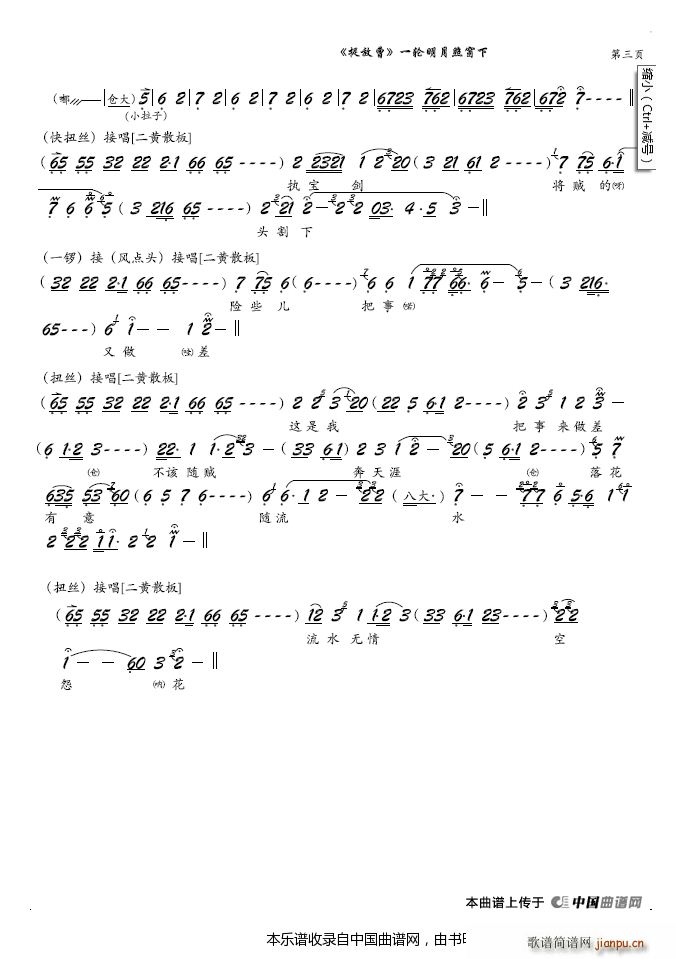 《捉放曹》一轮明月照窗下
第三页
缩小（Ctrl+减号）
（嘟 仓大） 5 | 6 2 | 7 2 | 6 2 | 7 2 | 6 2 | 7 2 | 6 2 | 7 2 | 6723 762 | 6723 762 | 672 7----
（小拉子）
（快扭丝）接唱[二黄散板]
（65 55 32 22 2·1 66 65----）2 2321 1 2 20（3 21 61 2----）7 75 6·1
执宝 剑 将贼 的(呀)
7 6 6 5（3 216 65----）2 21 2-2 2 03· 4·5 3-
头割下
（一锣）接（风点头）接唱[二黄散板]
（32 22 2·1 66 65----）7 75 6（6----）6 6 1 77 66· 6- 5-（3 216·
险些儿 把事
65---）6 1-- 1 2-
又做 差
（扭丝）接唱[二黄散板]
（65 55 32 22 2·1 66 65----）2 2 3 20（22 5 6·1 2----）2 3 1 2 3 -
这是我 把事来做差
（6 1·2 3----）22· 1 1·2 3-（33 6·1）2 3 1 2- 20（5 6·1 2----）5 7
(仓) 不该随贼 奔天涯 (仓) 落花
635 53 60（6 5 7 6----）6 6· 1 2 - 22（八大·）7 - - 77 6 5·6 1 1
有 意 随流 水
2 22 11· 2 2 1-
（扭丝）接唱[二黄散板]
（65 55 32 22 2·1 66 65----）12 3 1·2 3（33 6·1 23----）22
流水无情 空
1 - - 60 3 2-
怨 (呐)花
本曲谱上传于 中国曲谱网
本乐谱收录自中国曲谱网，由书
歌谱简谱网 jianpu.cn